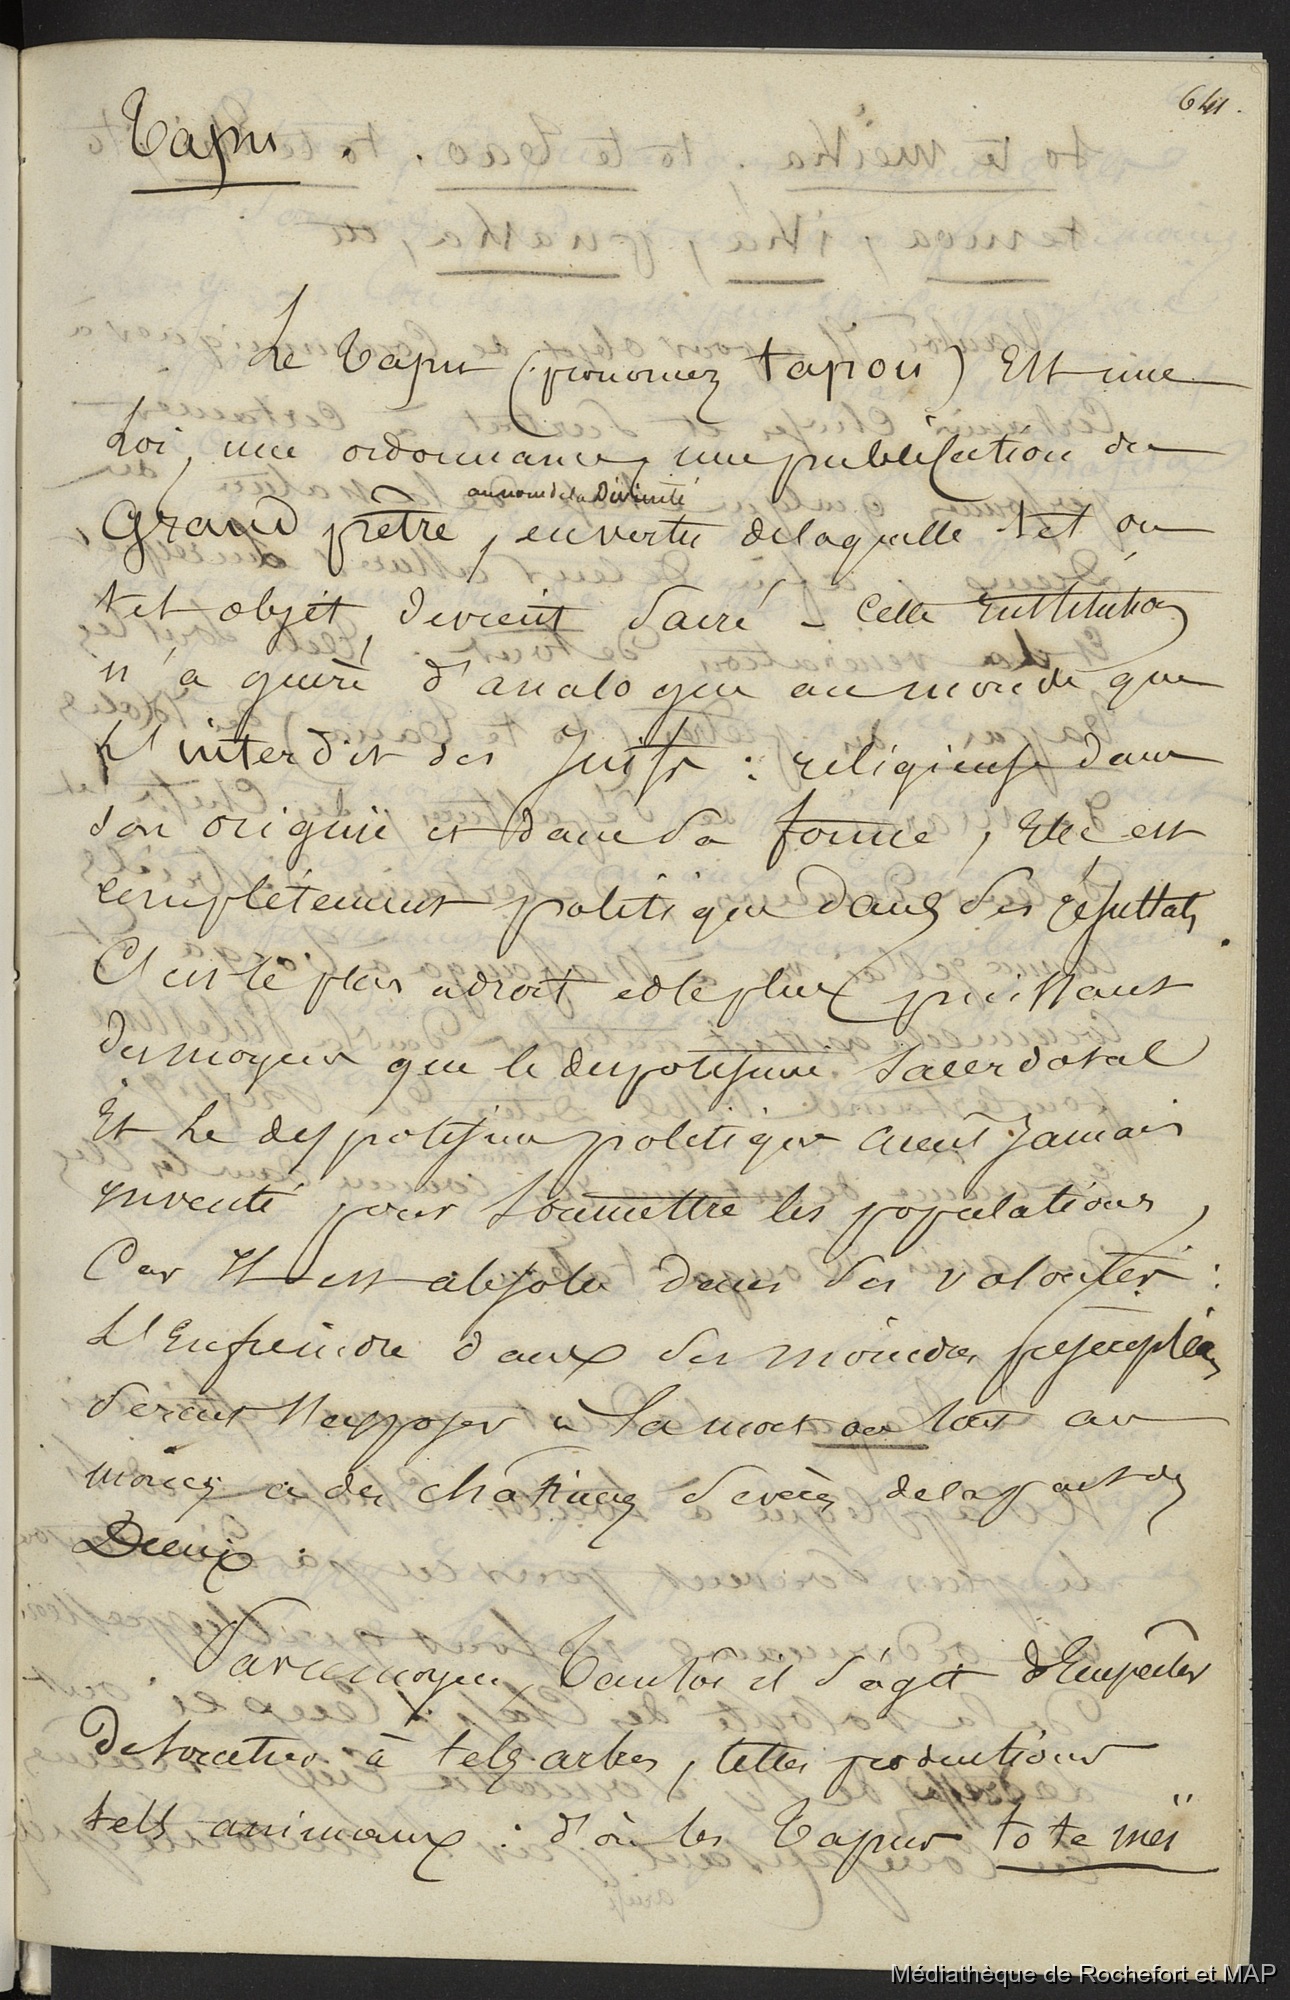 641.
Tapu.
Le Tapu (prononcez tapou) Est une
Loi, une ordonnance, une publication du
au nom de la Divinité
Grand prêtre, en vertu de laquelle tel ou
tel objet, devient Sacré - Cette Institution
n'a guère d'analogue au monde que
L'interdit des Juifs : religieuse dans
son origine et dans sa forme, Elle est
complétement politique dans ses résultats.
C'est le plus adroit et le plus puissant
des moyens que le despotisme Sacerdotal
Et Le despotisme politique aient Jamais
inventé pour Soumettre les populations,
Car Il est absolu dans ses volontés :
L'Enfreindre dans ses moindres
serait s'exposer à La mort ou tout au
moins à des châtimens sévères de la part des
Dieux.
Par ce moyen, Tantôt il s'agit d'Empêcher
De toucher à tels arbres, telles productions
tels animaux : d'où les Tapus to te meï
Médiathèque de Rochefort et MAP